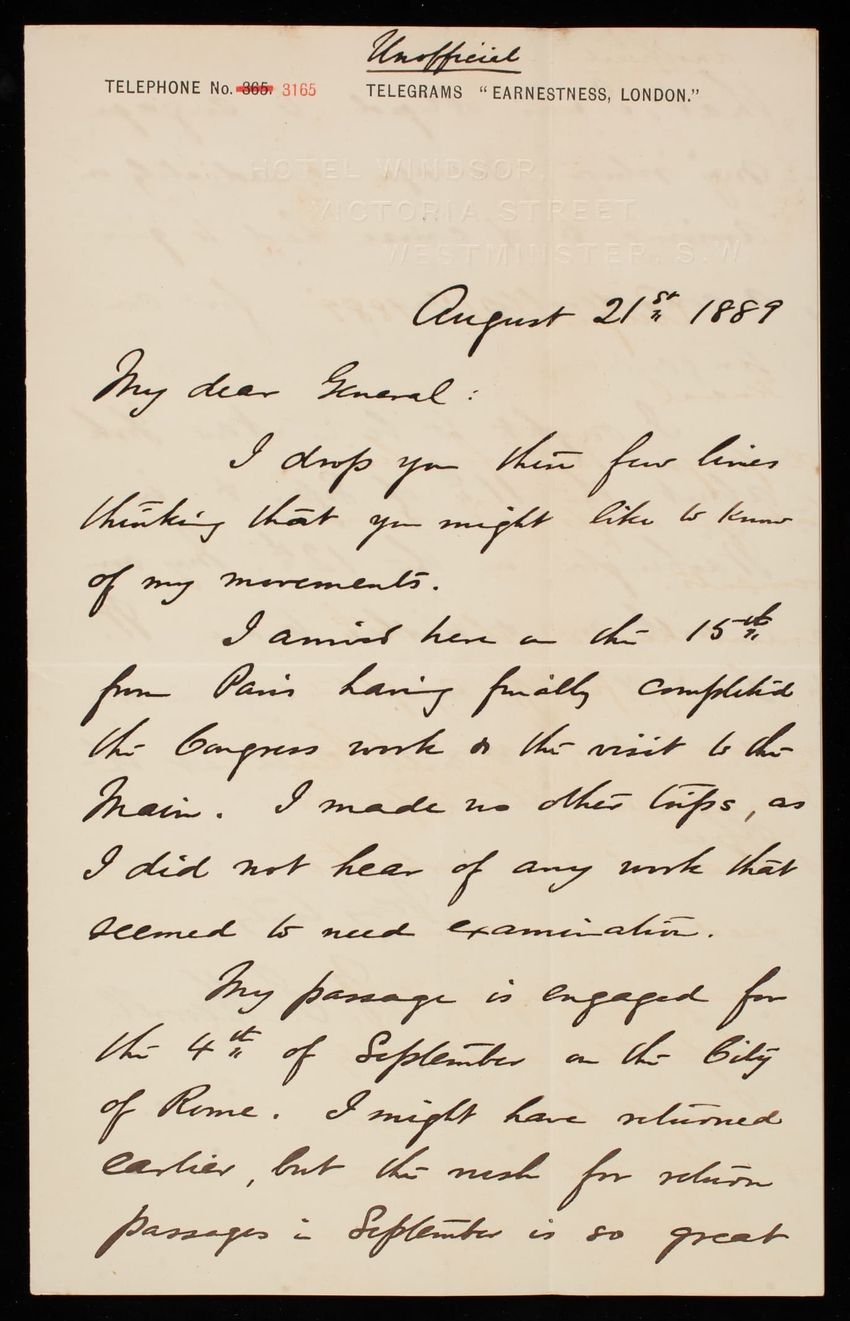 Unofficial
TELEPHONE No. 365. 3165 TELEGRAMS "EARNESTNESS, LONDON."
HOTEL WINDSOR,
VICTORIA STREET
WESTMINSTER, S.W
August 21st 1889
My dear General:
I drop you these few lines
thinking that you might like to know
of my movements.
I arrived here on the 15th
from Paris having finally completed
the Congress work & the visit to the
Main. I made no other trips, as
I did not hear of any work that
seemed to need examination.
My passage is engaged for
the 4th of September on the City
of Rome. I might have returned
earlier, but the rush for return
passages in September is so great